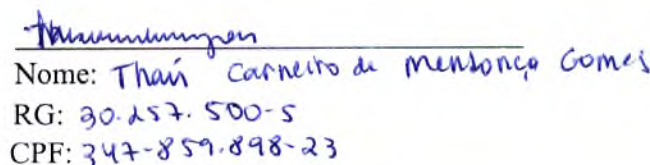 Nome: Thaís Carneiro de Mendonça Gomes
RG: 30.257.500-5
CPF: 347-859.898-23